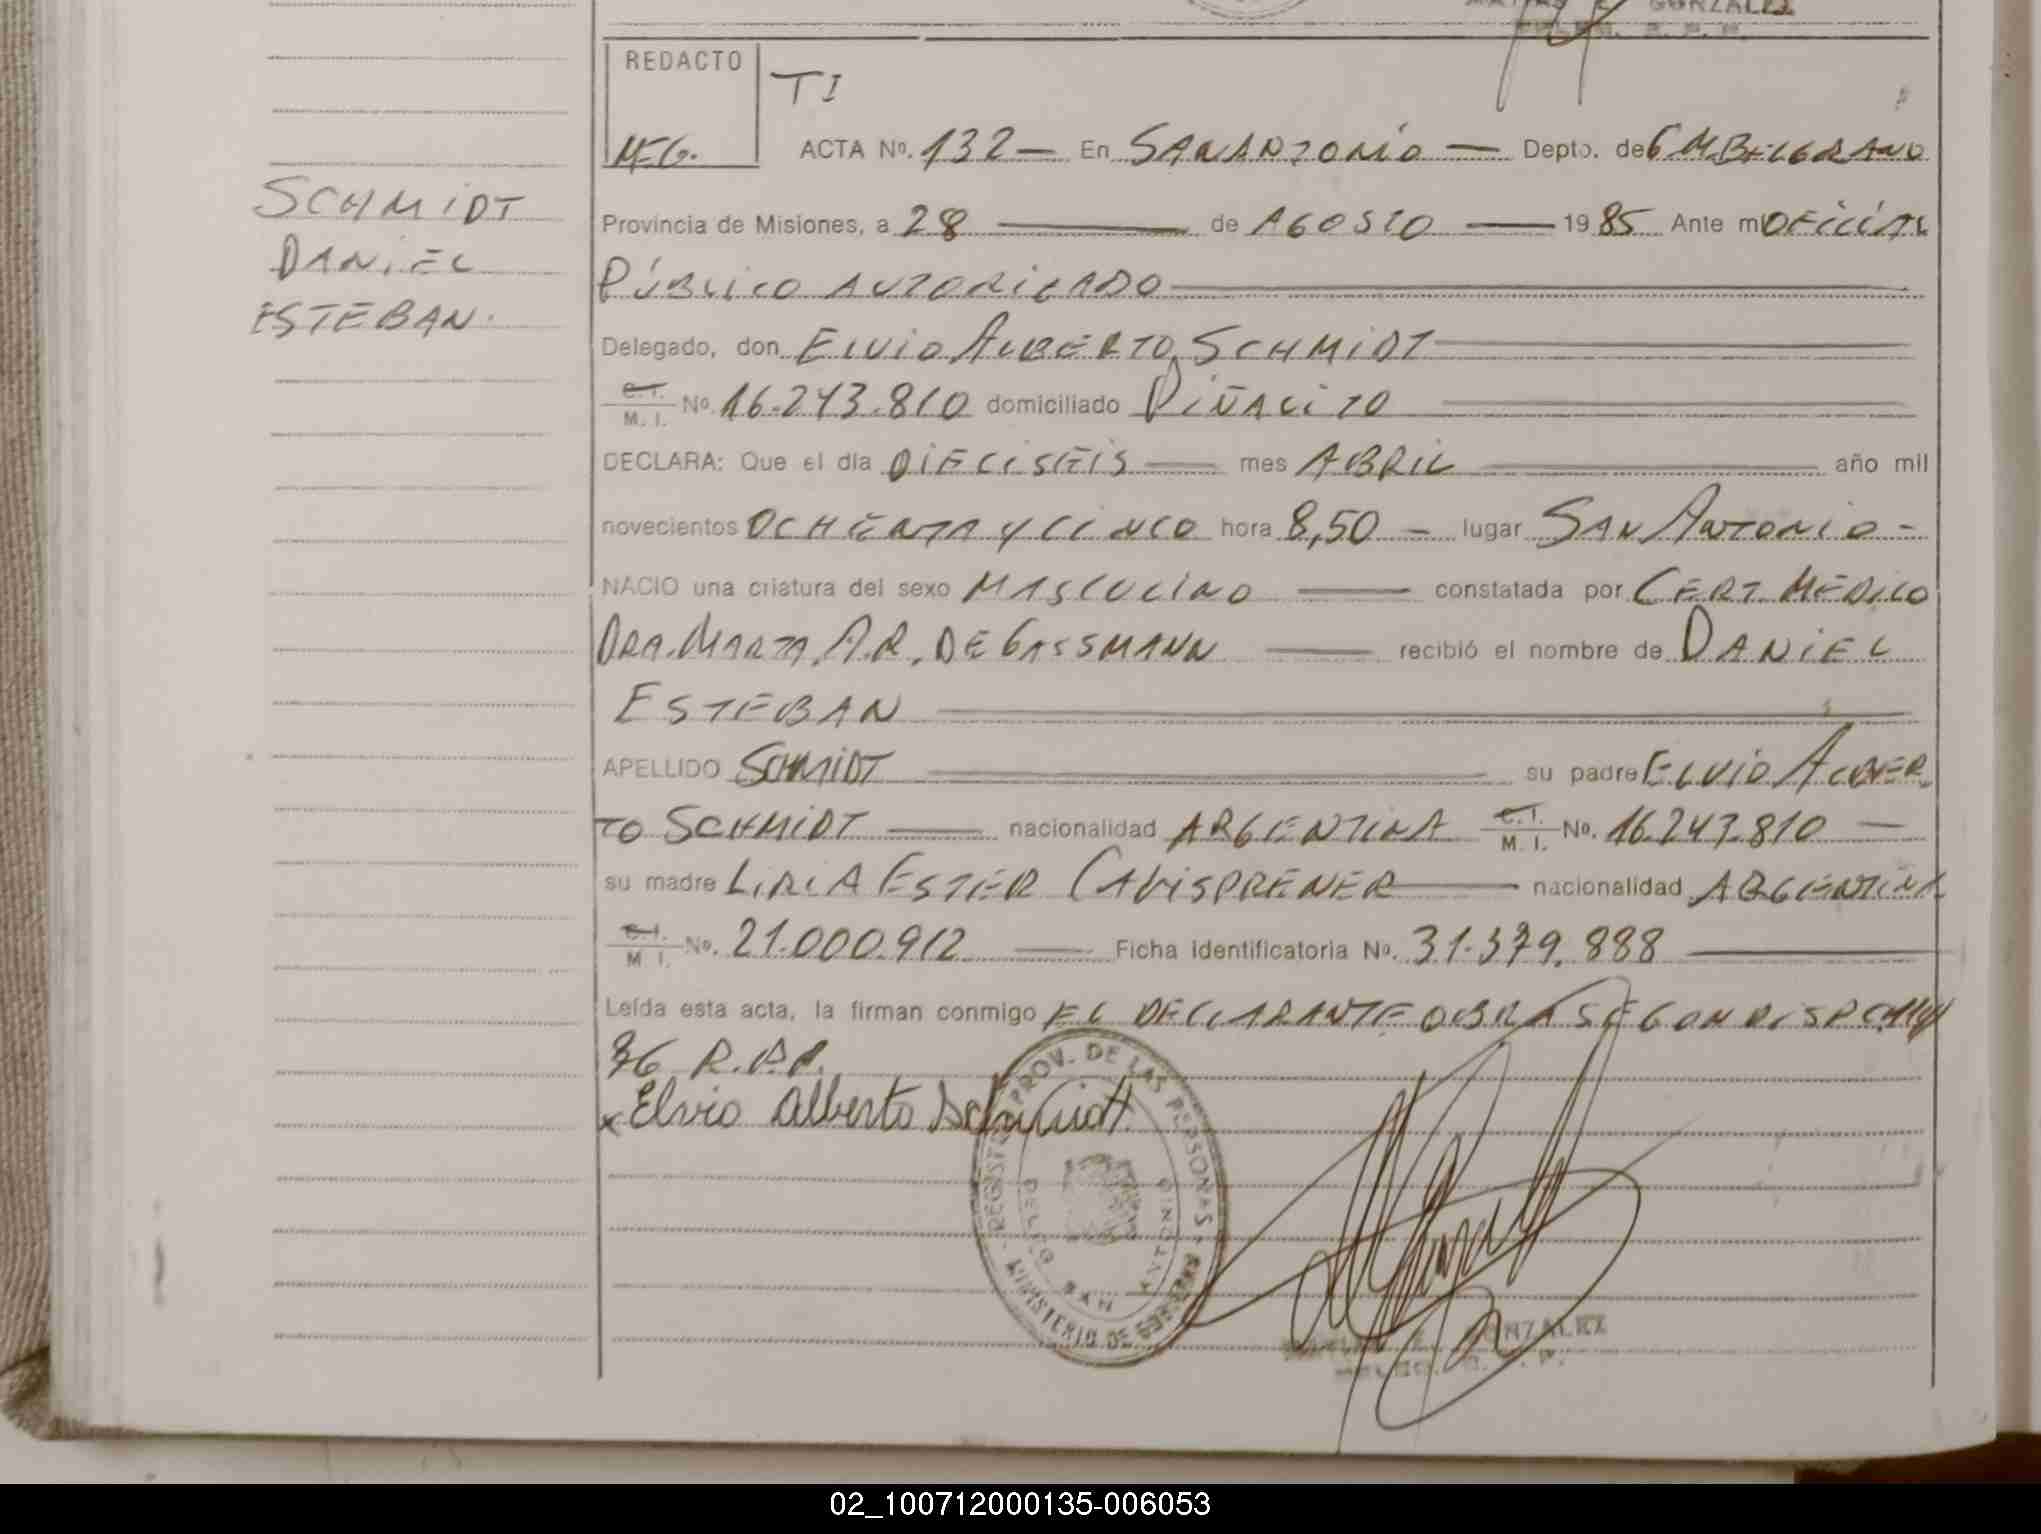 GONZALEZ
REDACTO
TI
M.E.G.
ACTA Nº. 132 — En SAN ANTONIO — Depto. de G M. BELGRANO
SCHMIDT
DANIEL
ESTEBAN.
Provincia de Misiones, a 28 — de AGOSTO — 1985 Ante mi OFICIAL
PÚBLICO AUTORIZADO
Delegado, don ELVIO ALBERTO SCHMIDT
C. I.
M. I. Nº. 16.243.810 domiciliado PIÑALITO
DECLARA: Que el día DIECISEIS — mes ABRIL — año mil
novecientos OCHENTA Y CINCO hora 8,50 — lugar SAN ANTONIO -
NACIO una criatura del sexo MASCULINO — constatada por CERT. MÉDICO
DRA. MARTA A.R. DE GASSMANN — recibió el nombre de DANIEL
ESTEBAN
APELLIDO SCHMIDT — su padre ELVIO ALBER
TO SCHMIDT — nacionalidad ARGENTINA C. I.
M. I. Nº. 16.243.810 —
su madre LIRIA ESTER — nacionalidad ARGENTINA
C. I.
M. I. Nº. 21.000.912 — Ficha identificatoria Nº. 31.379.888
Leída esta acta, la firman conmigo EL DECLARANTE OBRA SEGUN
36 R.P.P.
x Elvio Alberto Schmidt
REGISTRO PROV. DE LAS PERSONAS
MINISTERIO DE GOBIERNO
DELEG SAN ANTONIO
GONZALEZ
02_100712000135-006053